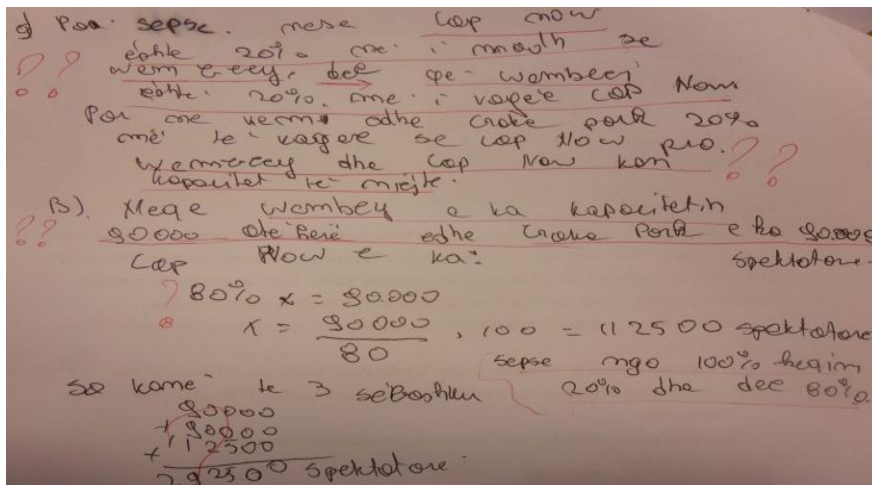 a) Poa. sepse. nese Cap now
eshte 20% me. i madh se
Wemereey, dee qe Wembeej
eshte. 20%. me. i vogel Cap Now
Por ne kemi edhe Croke park 20%
më te vogere se Cap Now pro.
Wemereey dhe Cap Now kan
kapacitet te njejte.
B). Meqe Wembey e ka kapacitetin
90.000 ateherë edhe Croke Park e ka 90.000
Cap Now e ka: spektatore.
80% x = 90.000
x = 90000 / 80 . 100 = 112500 spektatore
sepse nga 100% heqim
20% dhe dee 80%.
So kane te 3 seBashku
90000
+ 90000
+ 112500
292500 spektatore.
? ?
? ?
? ?
?